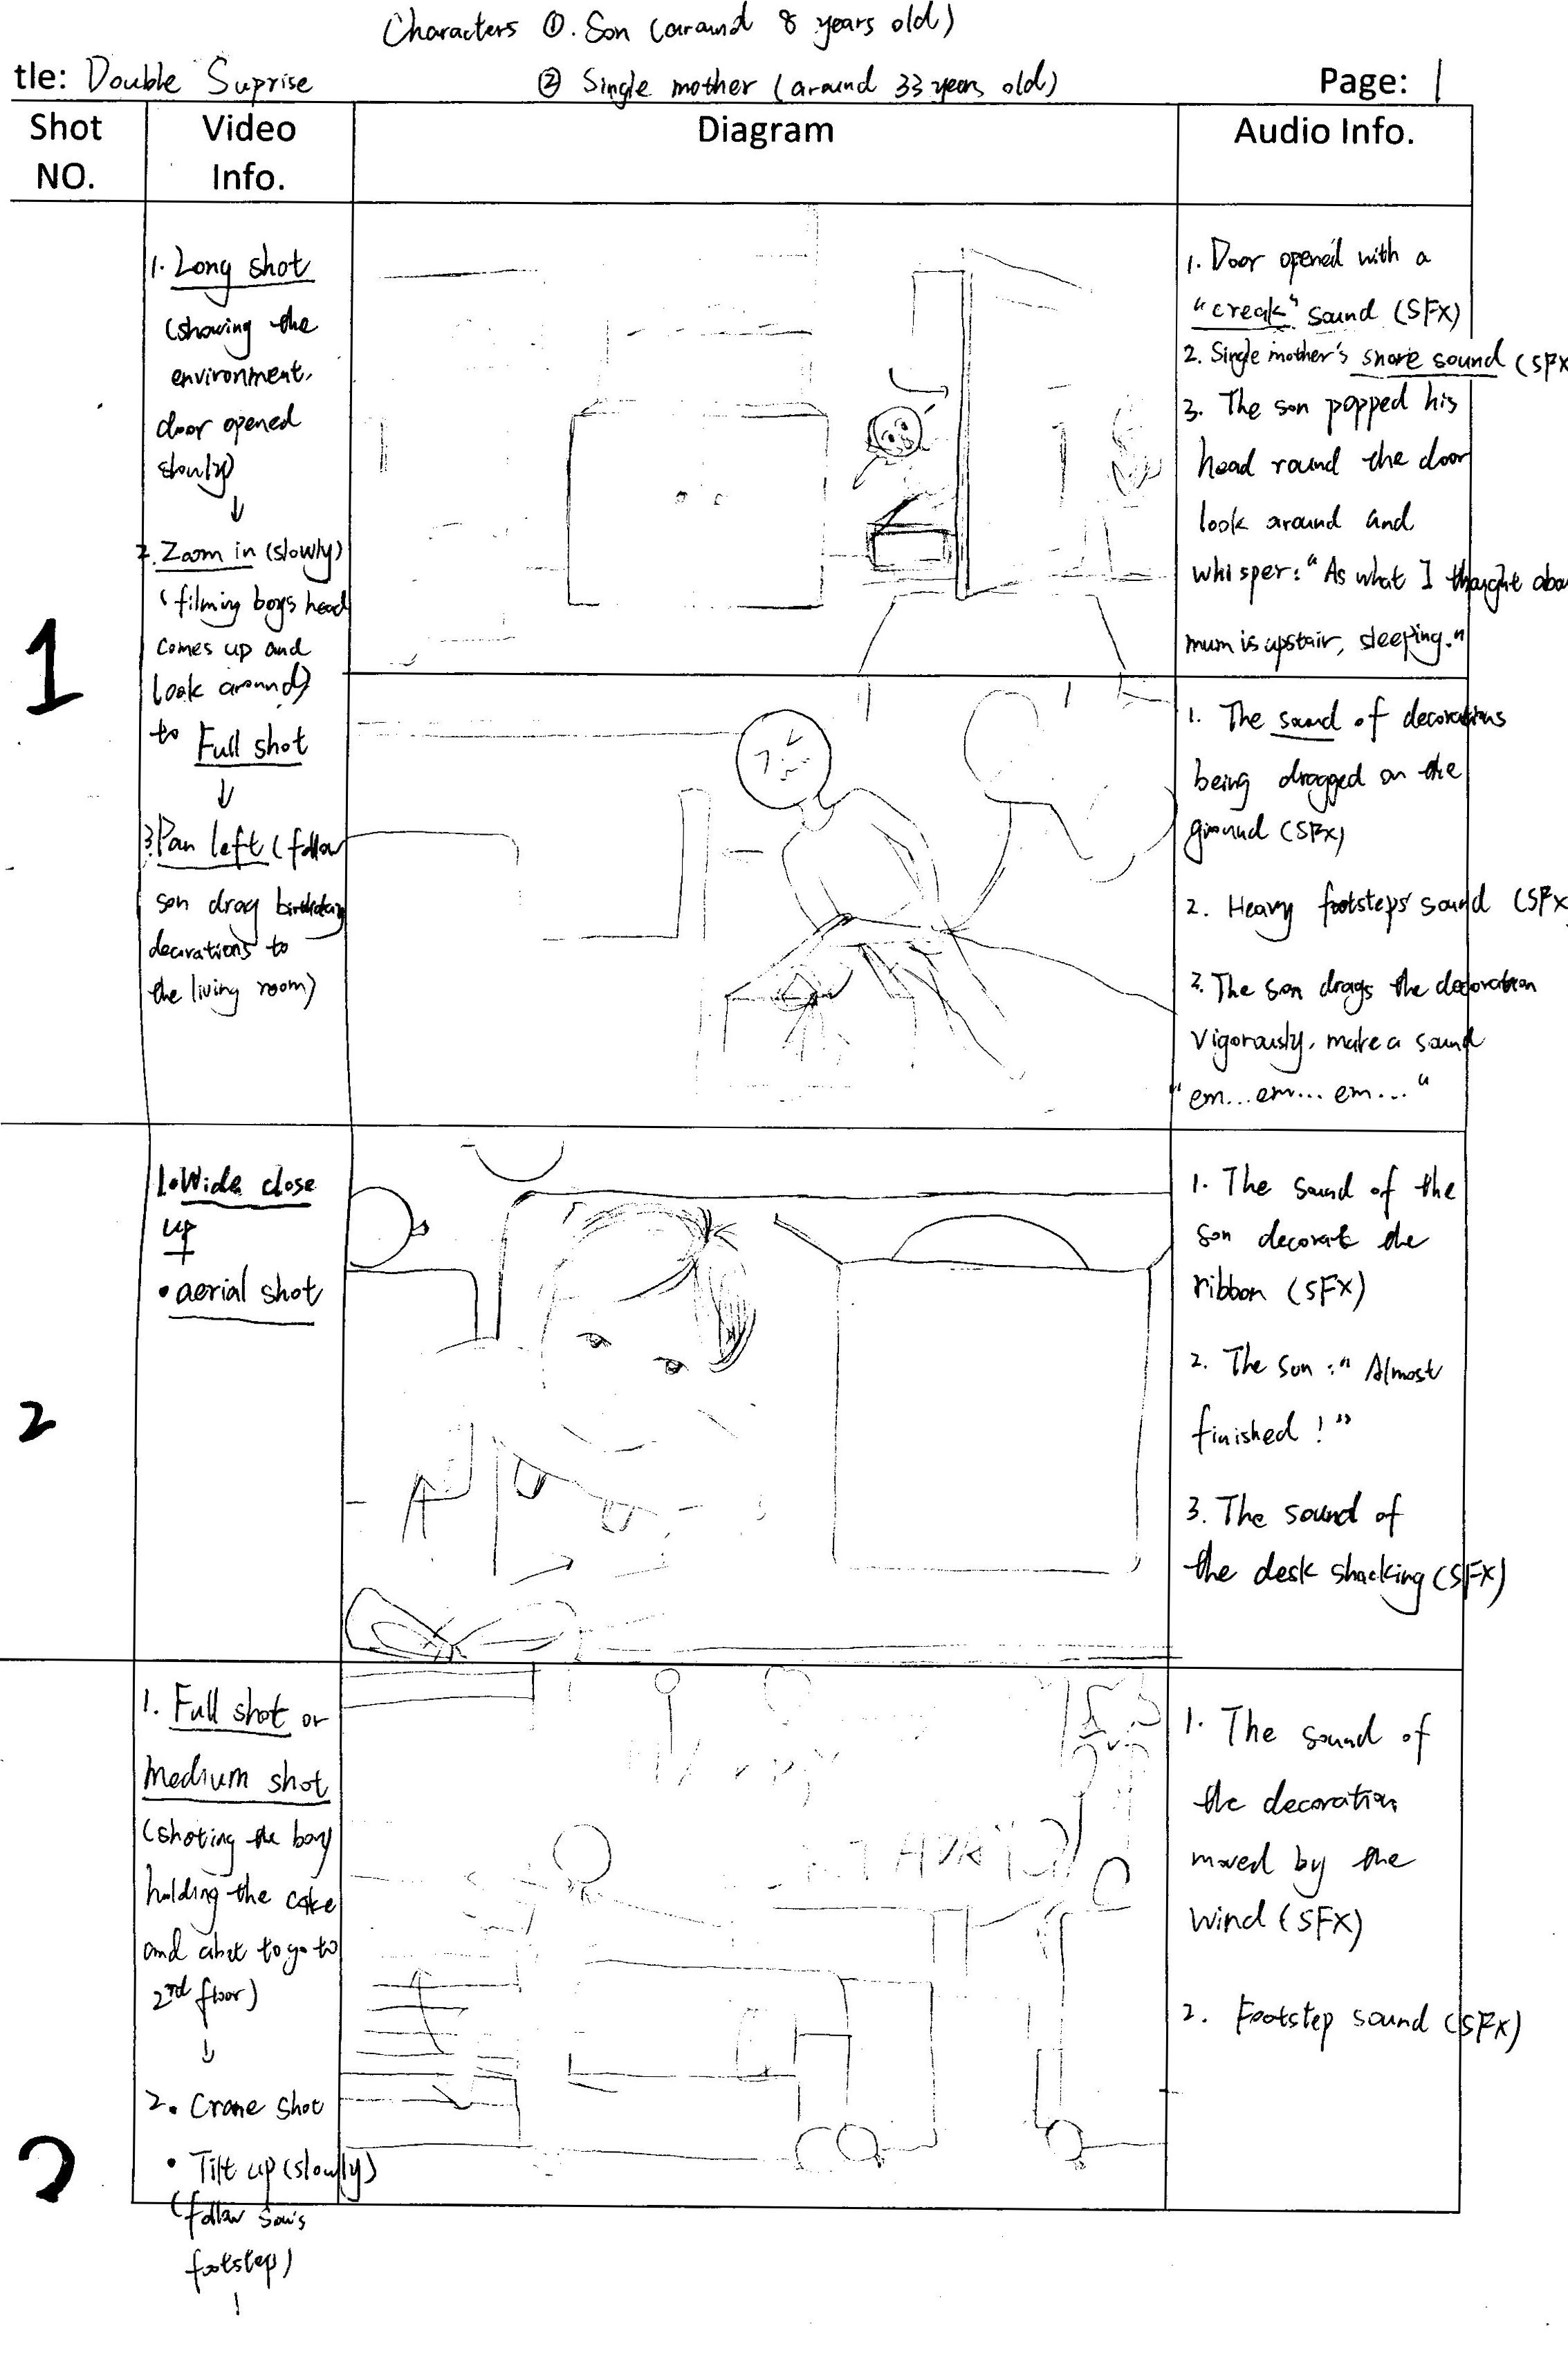 Characters ①. Son (around 8 years old)
tle: Double Suprise
② Single mother (around 33 years old)
Page: 1
Shot NO.
Video Info.
Diagram
Audio Info.
1
1. Long shot
(showing the
environment,
door opened
slowly)
↓
2. Zoom in (slowly)
(filming boys head
comes up and
look around)
to Full shot
↓
3. Pan left (follow
son drag birthday
decorations to
the living room)
1. Door opened with a
"creak" sound (SFX)
2. Single mother's snore sound (SFX
3. The son popped his
head round the door
look around and
whisper: "As what I thought abou
mum is upstair, sleeping."
1. The sound of decorations
being dragged on the
ground (SFX)
2. Heavy footsteps sound (SFX
3. The son drags the decoration
vigorously, make a sound
"em...em...em..."
2
1. Wide close
up
+
• aerial shot
1. The sound of the
son decorate the
ribbon (SFX)
2. The son: "Almost
finished!"
3. The sound of
the desk shacking (SFX)
3
1. Full shot or
medium shot
(shoting the boy
holding the cake
and about to go to
2nd floor)
↓
2. Crane shot
• Tilt up (slowly)
(follow son's
footstep)
1. The sound of
the decoration
moved by the
wind (SFX)
2. Footstep sound (SFX)